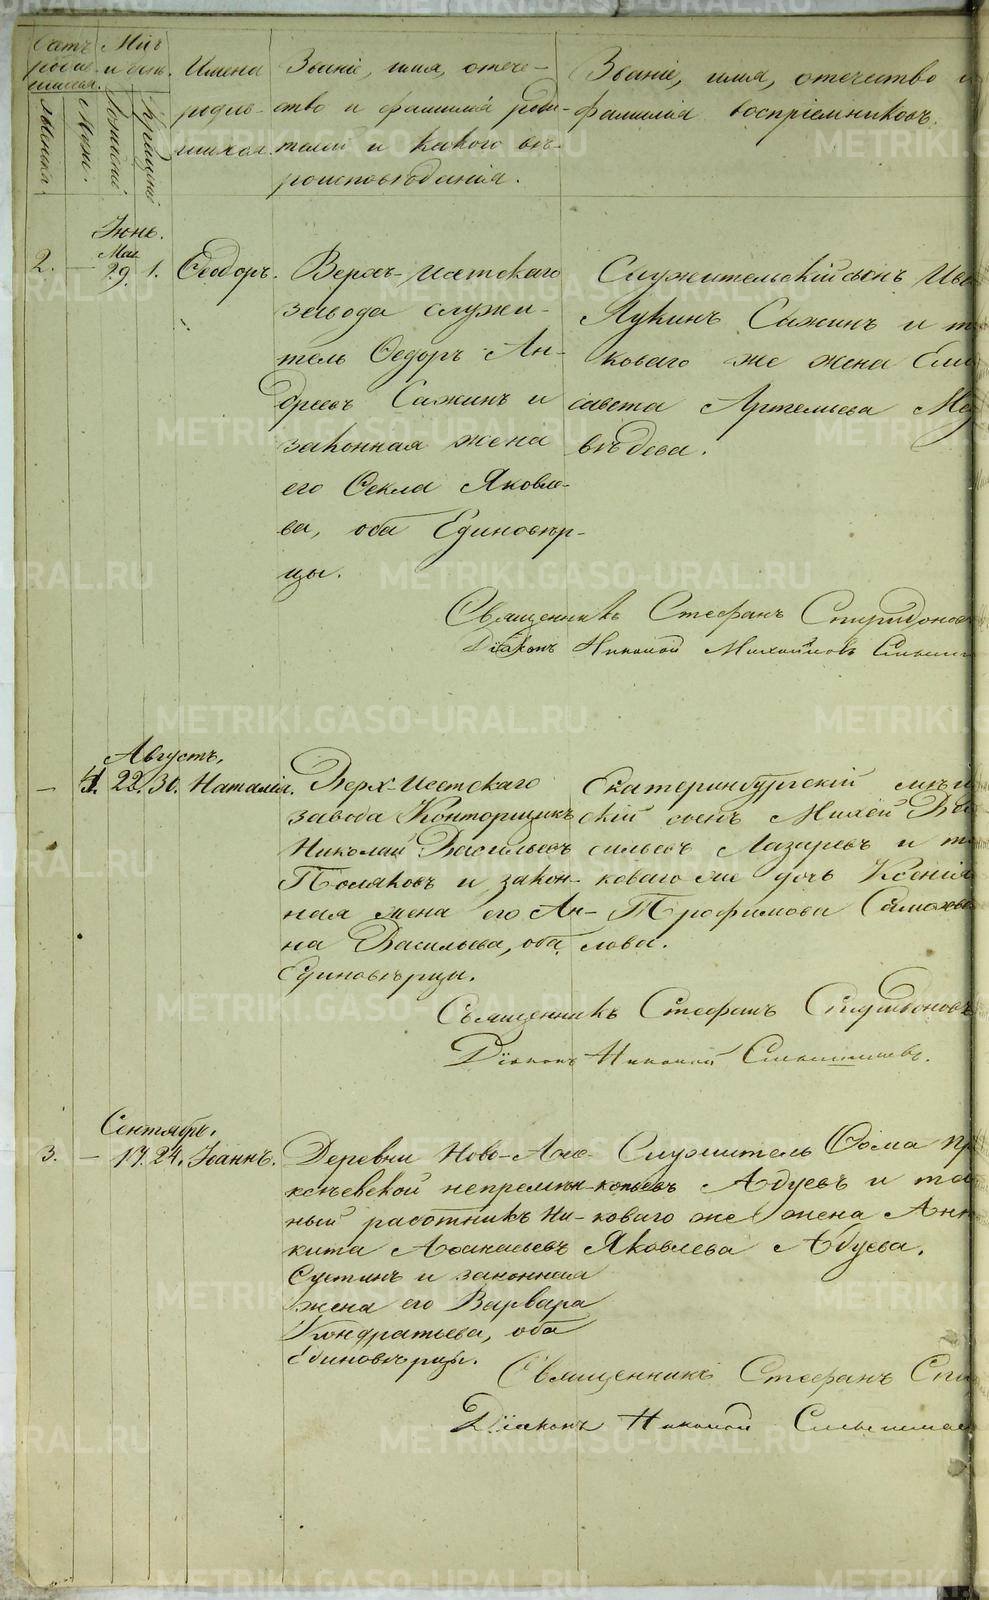 Счетъ родив-шихся.
Мѣс. и день.
Имена родив-шихся.
Званіе, имя, отече-
ство и фамилія роди-
телей и какого вѣ-
роисповѣданія.
Званіе, имя, отечество и
фамилія воспріемниковъ.
Мужеска.
Женс.
Рожденія
Крещенія
Іюнь.
Мая
2. — 29. 1. Ѳеодоръ.
Верхъ-Исетскаго
завода служи-
тель Ѳедоръ Ан-
дреевъ Сажинъ и
законная жена
его Ѳекла Яковле-
ва, оба Единовѣр-
цы.
Служительскій сынъ Ива
Лукинъ Сажинъ и т
коваго же жена Ели
савета Артемьева Мед
вѣдева.
Священникъ Стефанъ Спиридонов
Діаконъ Николай Михайловъ
Августъ.
— 4. 22. 30. Наталія.
Верх-Исетскаго
завода Конторщикъ
Николай Васильевъ
Поляковъ и закон-
ная жена его Ан-
на Васильева, оба
Единовѣрцы.
Екатеринбургскій мѣщ
скій сынъ Михей Ва
сильевъ Лазаревъ и т
коваго же дочь Ксенія
Трофимова
лова.
Священникъ Стефанъ Спиридоновъ
Діаконъ Николай
Сентябрь.
3. — 17. 24. Іоаннъ.
Деревни Ново-Але-
ксѣевской непремѣн-
ный работникъ Ни-
кита Аѳанасьевъ
Сустинъ и законная
жена его Варвара
Кондратьева, оба
Единовѣрцы.
Служитель Ѳома Пр
копьевъ Абуевъ и та
коваго же жена Анн
Яковлева Абуева.
Священникъ Стефанъ Спи
Діаконъ Николай
METRIKI.GASO-URAL.RU